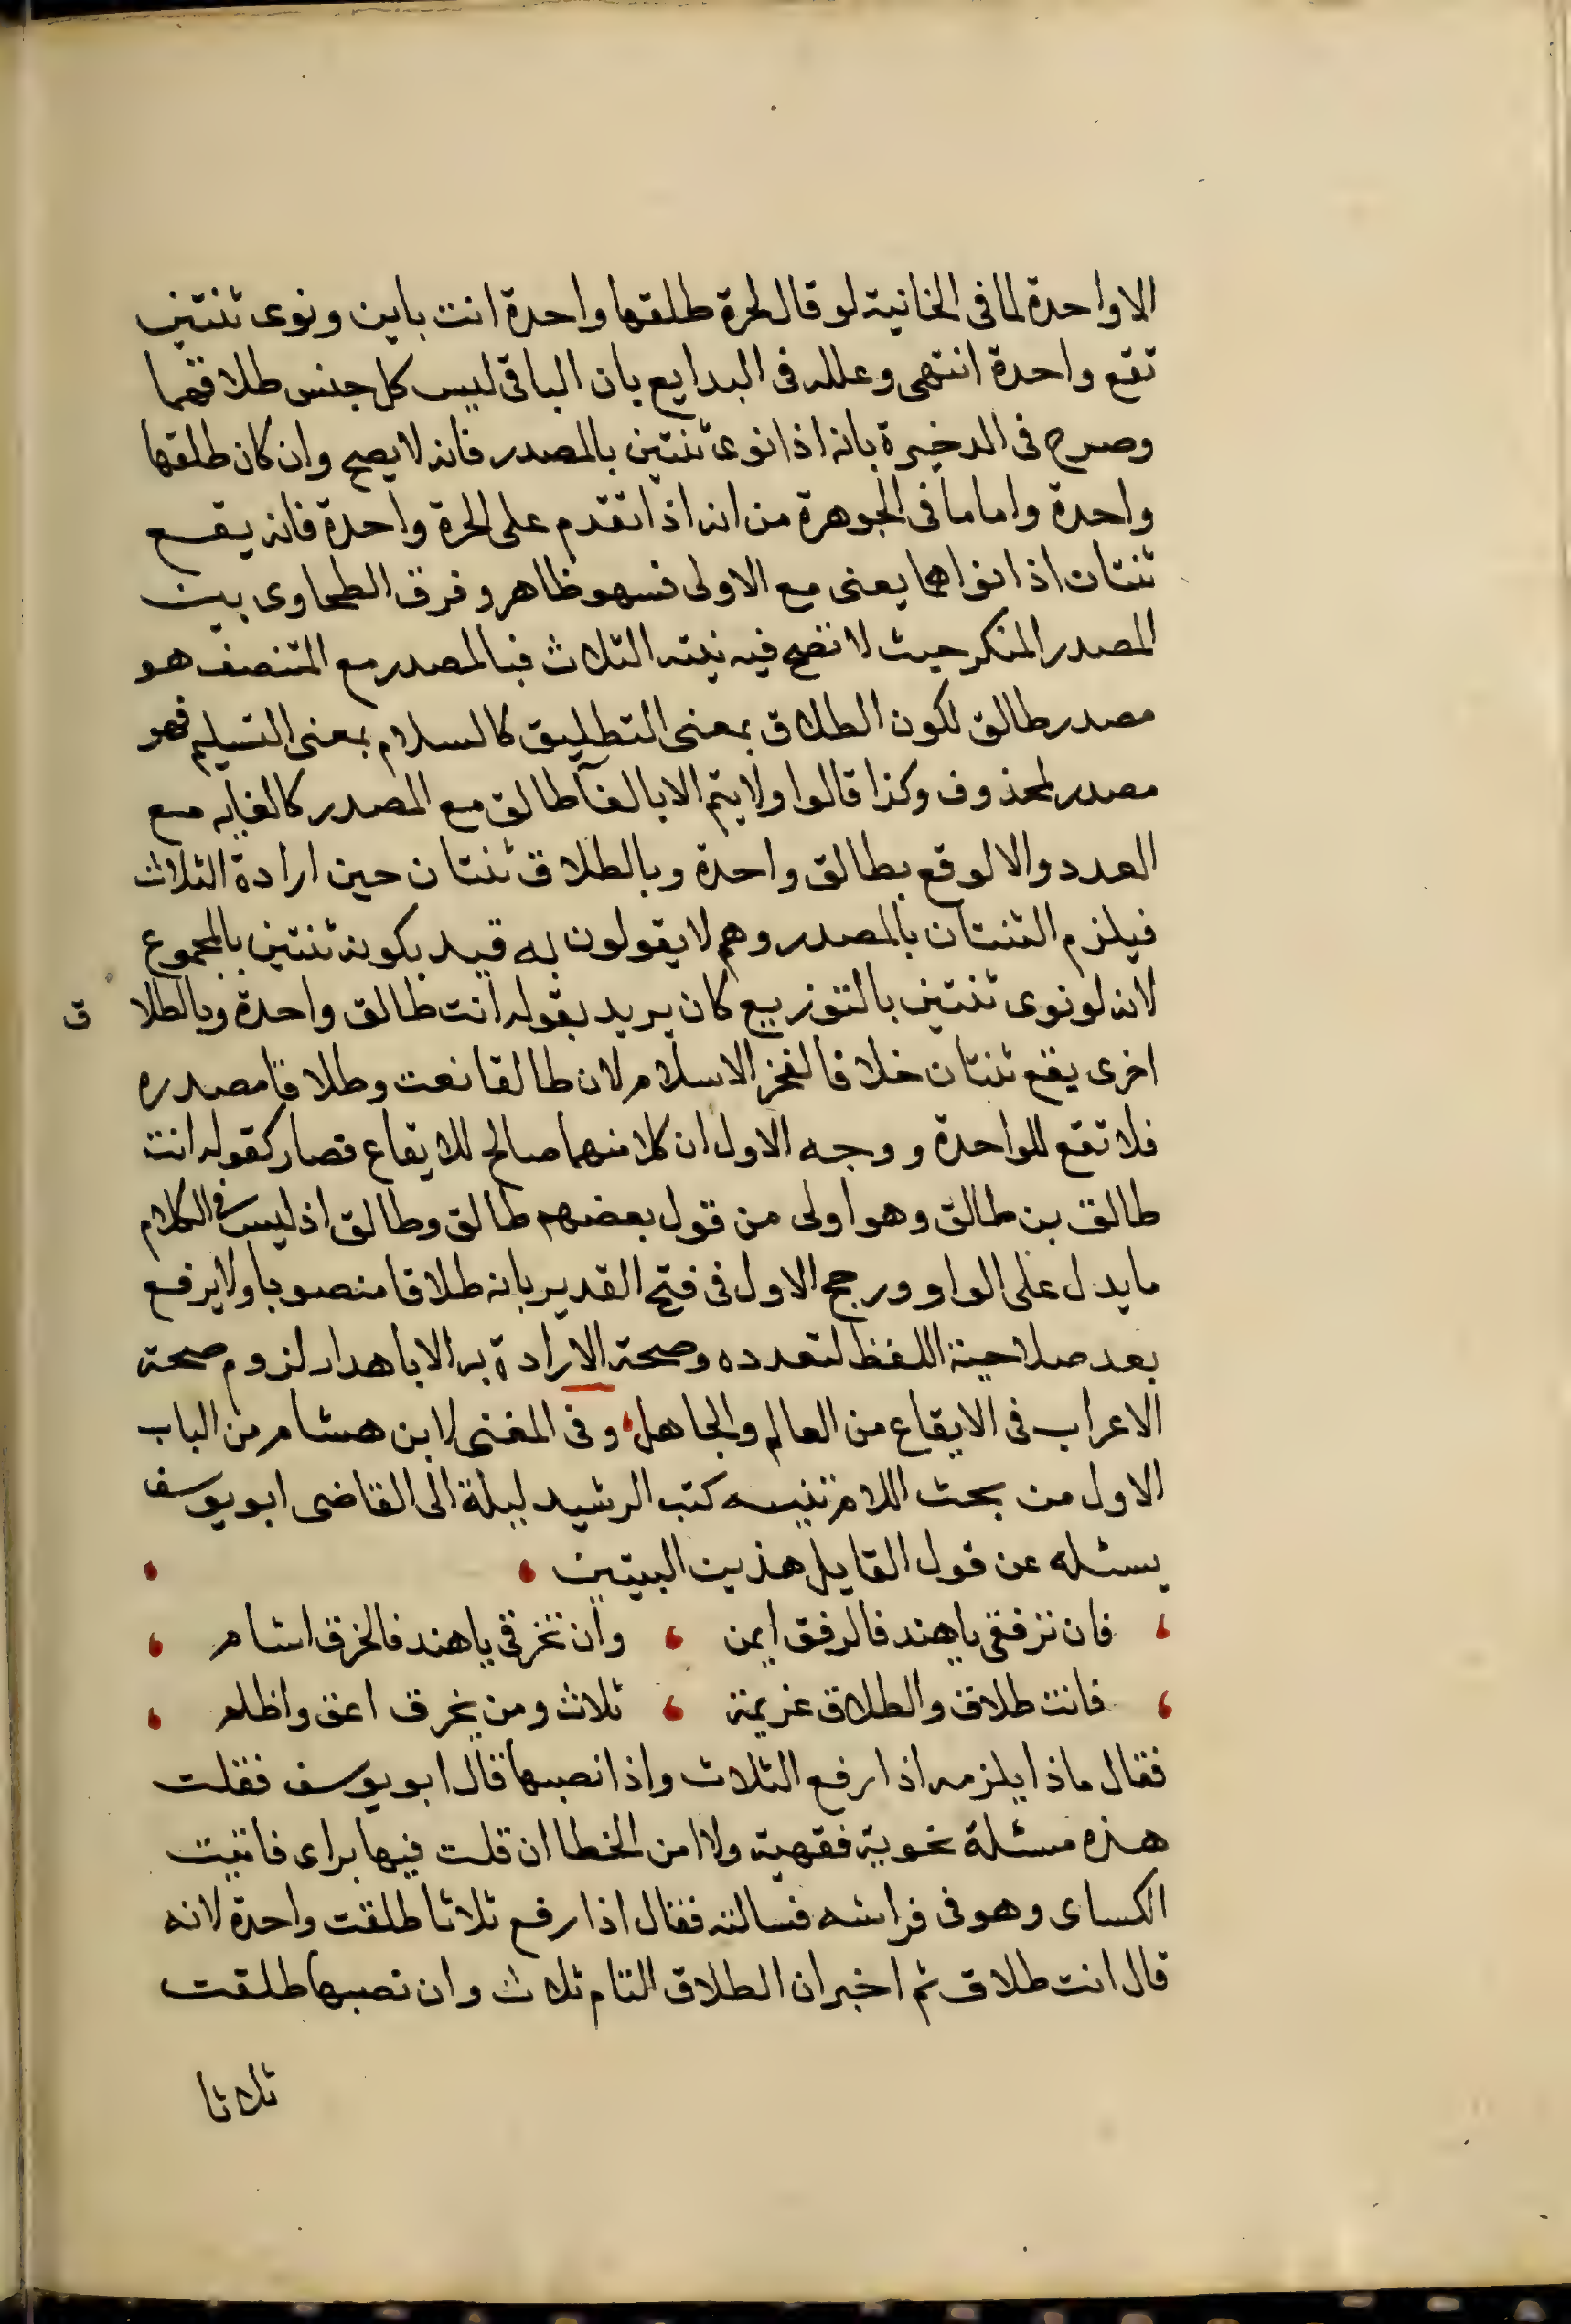 الاواحدة لما فى الخانية لو قال لحرة طلقها واحدة انت باين ونوى ثنتين
تقع واحدة انتهى وعلله فى البدايع بان الباقى ليس كل جنس طلاقهما
وصرح فى الدخيرة بانه اذا نوى ثنتين بالمصدر فانه لا يصح وان كان طلقها
واحدة واما ما فى الجوهرة من انه اذا تقدم على الحرة واحدة فانه يقع
ثنتان اذا نواهما يعنى مع الاولى فسهو ظاهر وفرق الطحاوى بين
المصدر المنكر حيث لا تصح فيه نيته الثلاث فبالمصدر مع المتنصف هو
مصدر طالق لكون الطلاق بمعنى التطليق كالسلام بمعنى التسليم فهو
مصدر لمحذوف وكذا قالوا ولا يتم الا بالغآ طالق مع المصدر كالغايه مع
العدد والا لوقع بطالق واحدة وبالطلاق ثنتان حين ارادة الثلاث
فيلزم الثنتان بالمصدر وهم لا يقولون به قيد بكونه ثنتين بالمجموع
لانه لو نوى ثنتين بالتوزيع كان يريد بقوله انت طالق واحدة وبالطلاق
اخرى يقع ثنتان خلافا لفخر الاسلام لان طالقا نعت وطلاقا مصدره
فلا تقع للواحدة ووجه الاول ان كلا منهما صالح للايقاع فصار كقوله انت
طالق بن طالق وهو اولى من قول بعضهم طالق وطالق اذ ليس فى الكلام
ما يدل على الواو ورجح الاول فى فتح القدير بانه طلاقا منصوبا ولا يرفع
بعد صلاحية اللفظ لتعدده وصحة الارادة به الا باهدار لزوم صحة
الاعراب فى الايقاع من العالم والجاهل وفى المغنى لابن هشام من الباب
الاول من بحث اللام تنبيه كتب الرشيد ليلة الى القاضى ابو يوسف
يسئله عن قول القايل هذين البيتين
فان ترفقى ياهند فالرفق ايمن ، وان تخرقى ياهند فالخرق اشام
فانت طلاق والطلاق عزيمة ، ثلاث ومن يخرق اعق واظلم
فقال ماذا يلزمه اذا رفع الثلاث واذا نصبها قال ابو يوسف فقلت
هذه مسئلة نحوية فقهية ولا امن الخطا ان قلت فيها براى فاتيت
الكساى وهو فى فراشه فسالته فقال اذا رفع ثلاثا طلقت واحدة لانه
قال انت طلاق ثم اخبر ان الطلاق التام ثلاث وان نصبها طلقت
ثلاثا